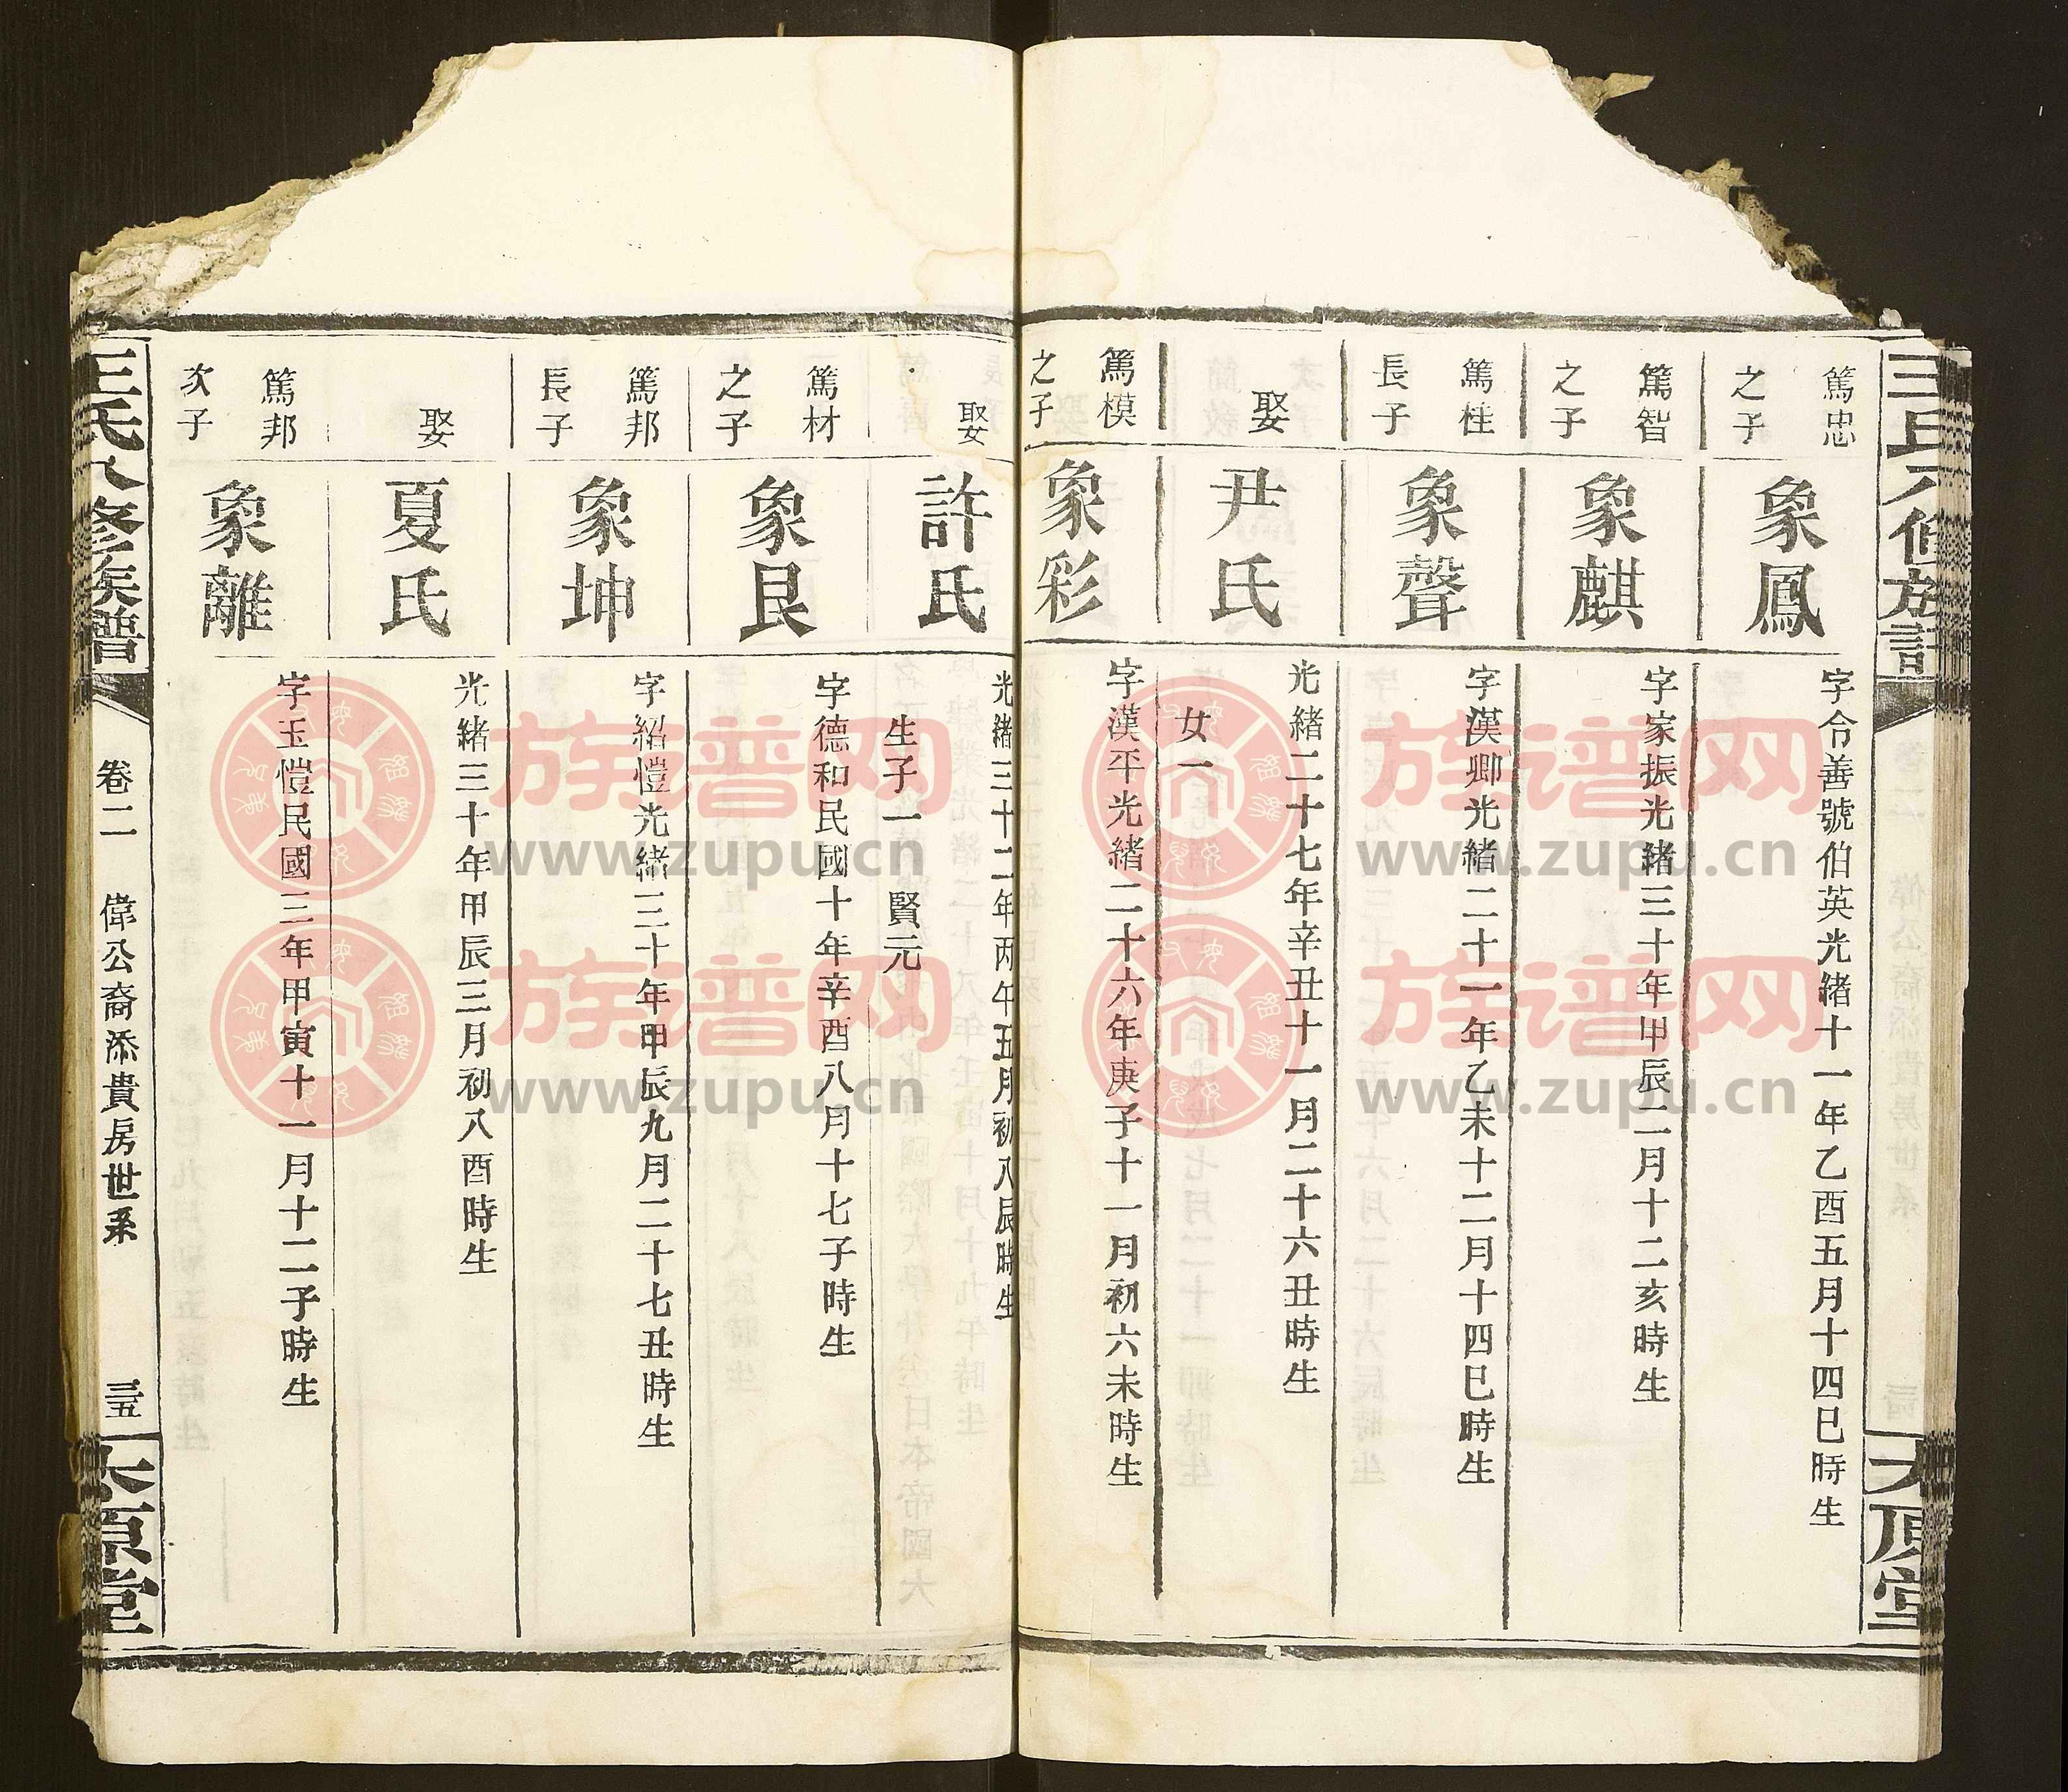 篤忠
之子
象鳳
字令善號伯英光緒十一年乙酉五月十四巳時生
篤智
之子
象麒
字家振光緒三十年甲辰二月十二亥時生
篤桂
長子
象聲
字漢卿光緒二十一年乙未十二月十四巳時生
娶
尹氏
光緒二十七年辛丑十一月二十六丑時生
女一
篤模
之子
象彩
字漢平光緒二十六年庚子十一月初六未時生
娶
許氏
光緒三十二年丙午五月初八辰時生
生子一 賢元
篤材
之子
象艮
字德和民國十年辛酉八月十七子時生
篤邦
長子
象坤
字紹愷光緒三十年甲辰九月二十七丑時生
娶
夏氏
光緒三十年甲辰三月初八酉時生
篤邦
次子
象離
字玉愷民國三年甲寅十一月十二子時生
王氏八修族譜
卷二 偉公裔添貴房世系
三五
太原堂
族谱网
www.zupu.cn
族谱网
www.zupu.cn
族谱网
www.zupu.cn
族谱网
www.zupu.cn